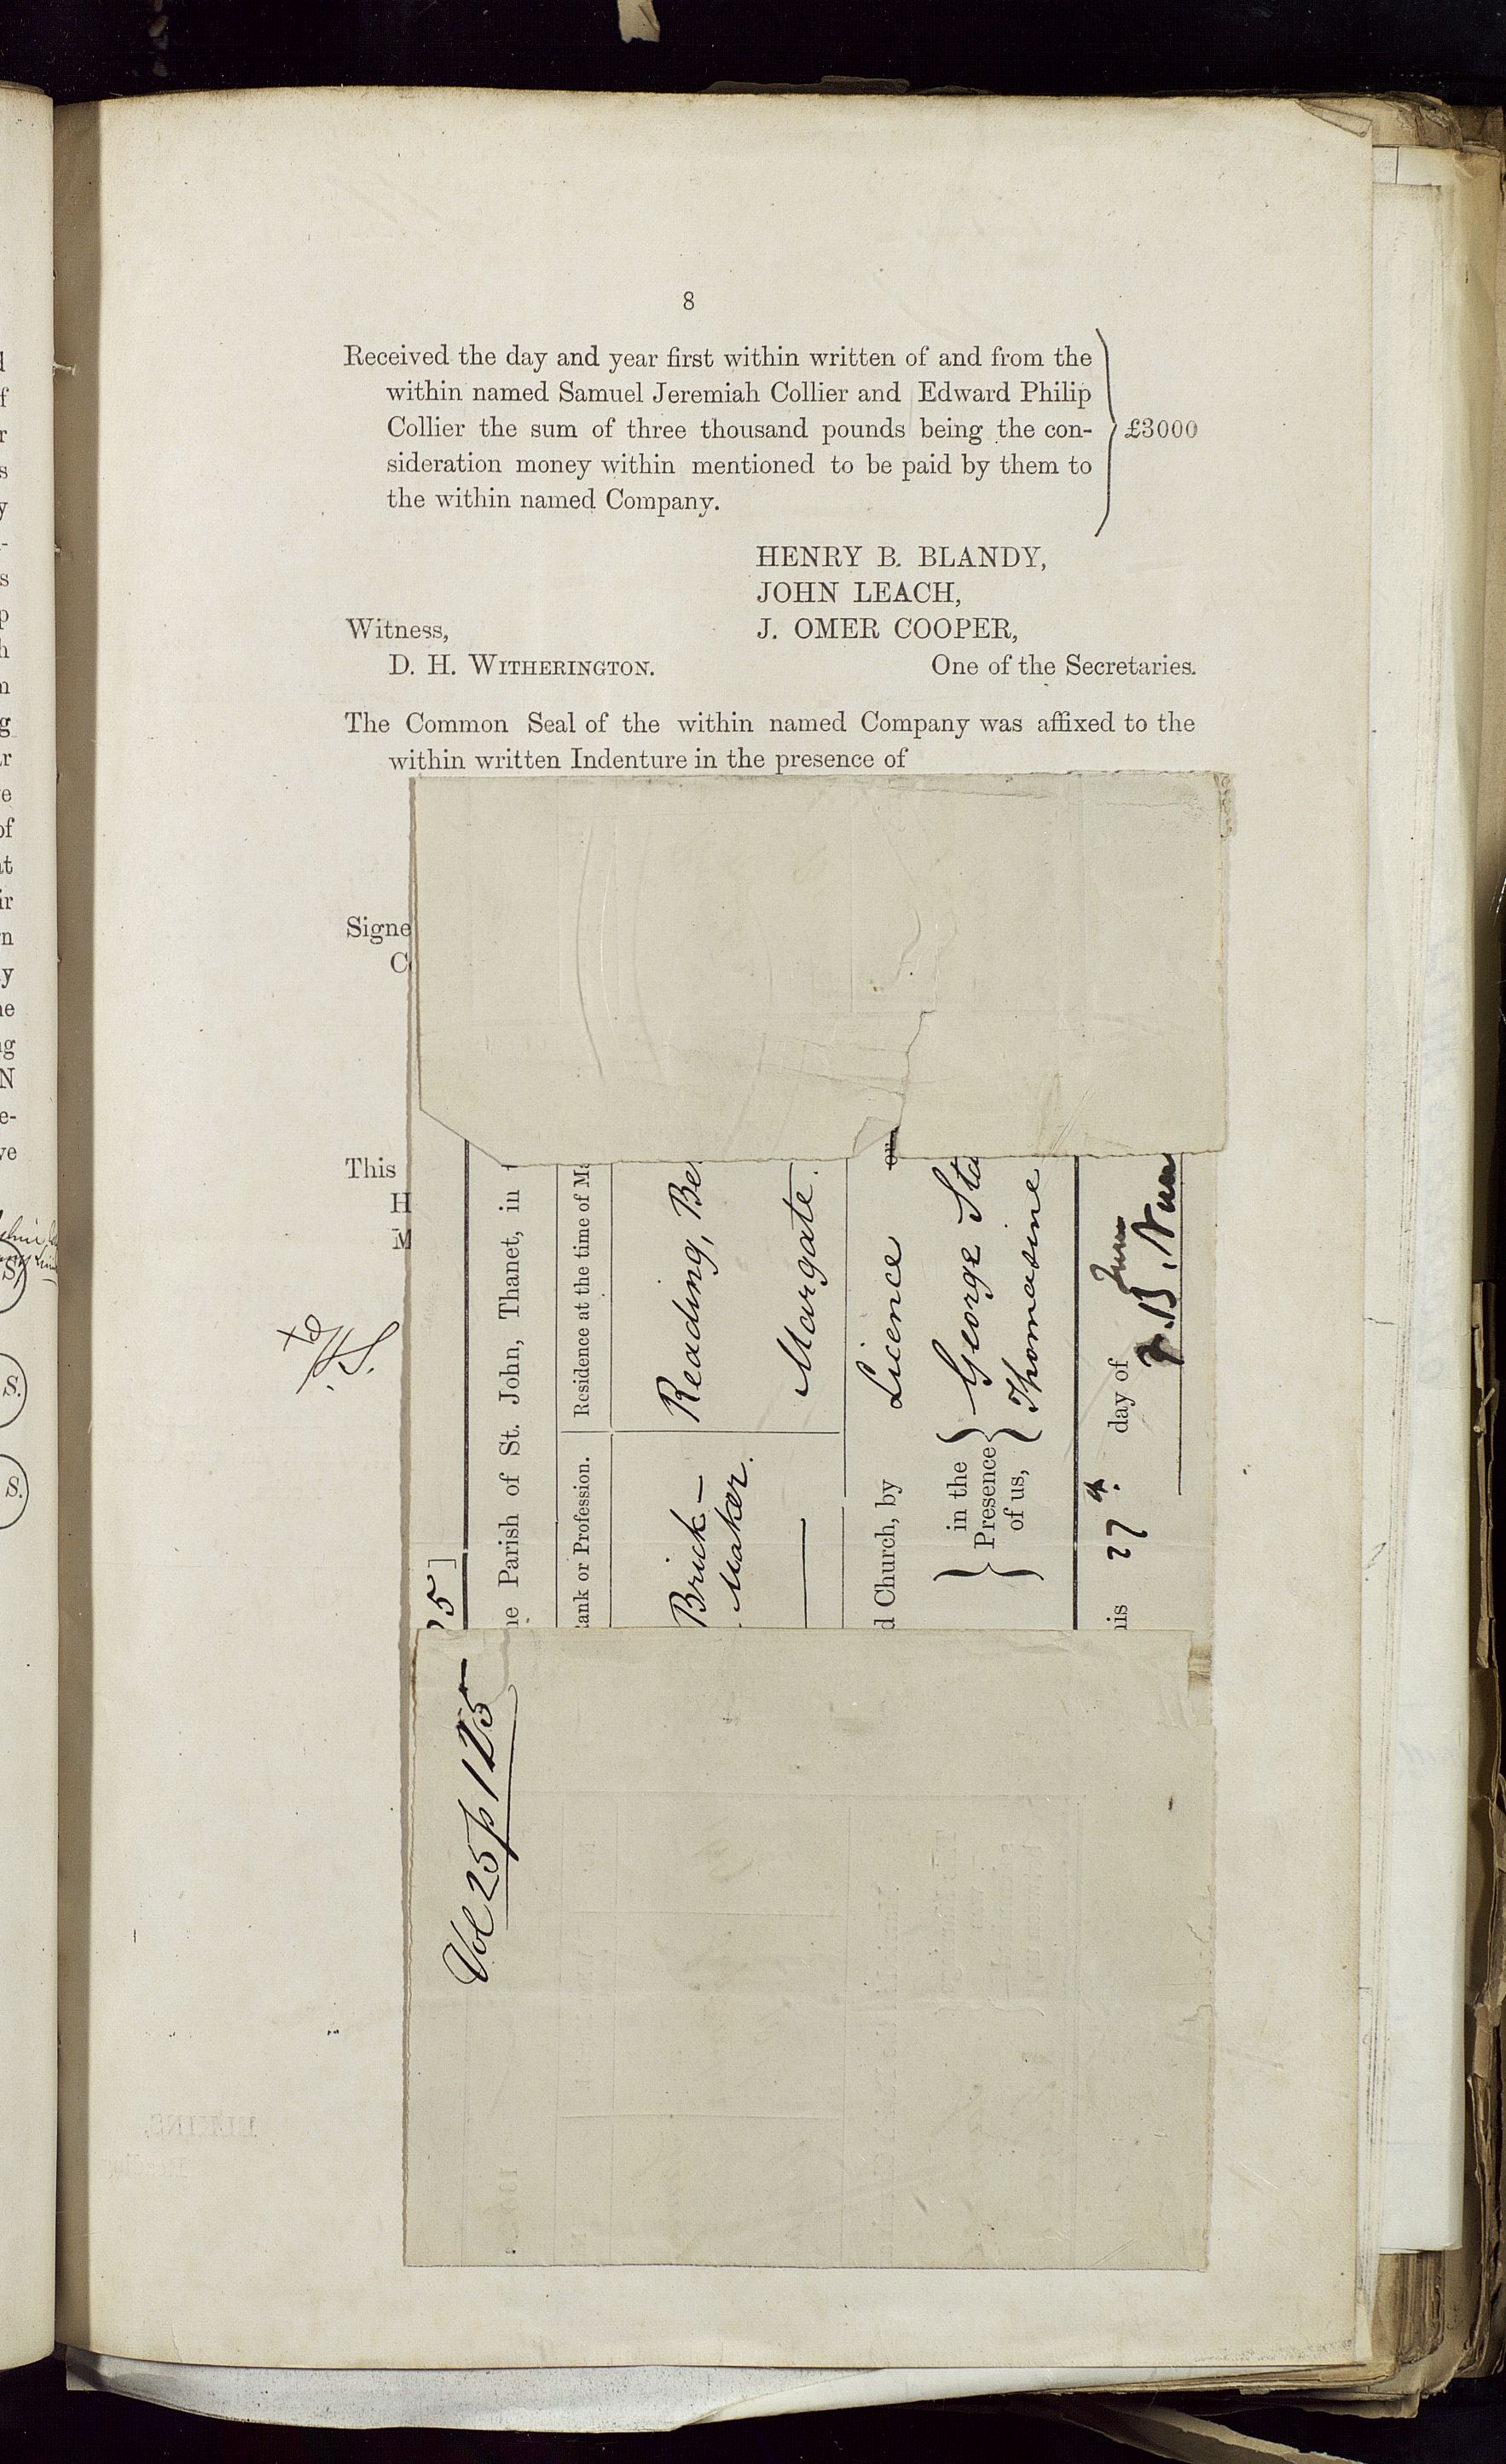 8
Received the day and year first within written of and from the
within named Samuel Jeremiah Collier and Edward Philip
Collier the sum of three thousand pounds being the con-
sideration money within mentioned to be paid by them to
the within named Company.
£3000
HENRY B. BLANDY,
JOHN LEACH,
Witness,
J. OMER COOPER,
D. H. WITHERINGTON.
One of the Secretaries.
The Common Seal of the within named Company was affixed to the
within written Indenture in the presence of
Signe
C
This
H
M
25]
e Parish of St. John, Thanet, in
ank or Profession.
Residence at the time of Ma
Brick-
Maker.
Reading, Be
Margate.
d Church, by
Licence
or
in the
Presence
of us,
George Sta
Thomasine
his 27th day of June
Vol 25 p 125